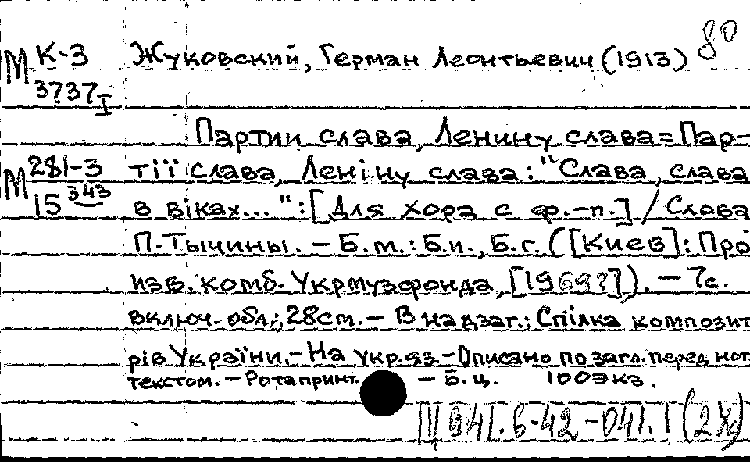 80
М К-3 Жуковский, Герман Леонтьевич (1913)
3737 I
Партии слава, Ленину слава = Пар-
М 281-3 тії слава, Леніну слава : "Слава, слава
15 343 в віках..." : [Для хора с ф.-п.] / Слова
П. Тычины. – Б.м. : Б.и., Б.г. ([Киев] : Про
изв. комб. Укрмузфонда, [1969?]). – 7с.
включ. обл.; 28см. – В надзаг.: Спілка композит
рів України. – На укр. яз. – Описано по загл. перед нот.
текстом. – Ротапринт. – Б.ц. 100экз.